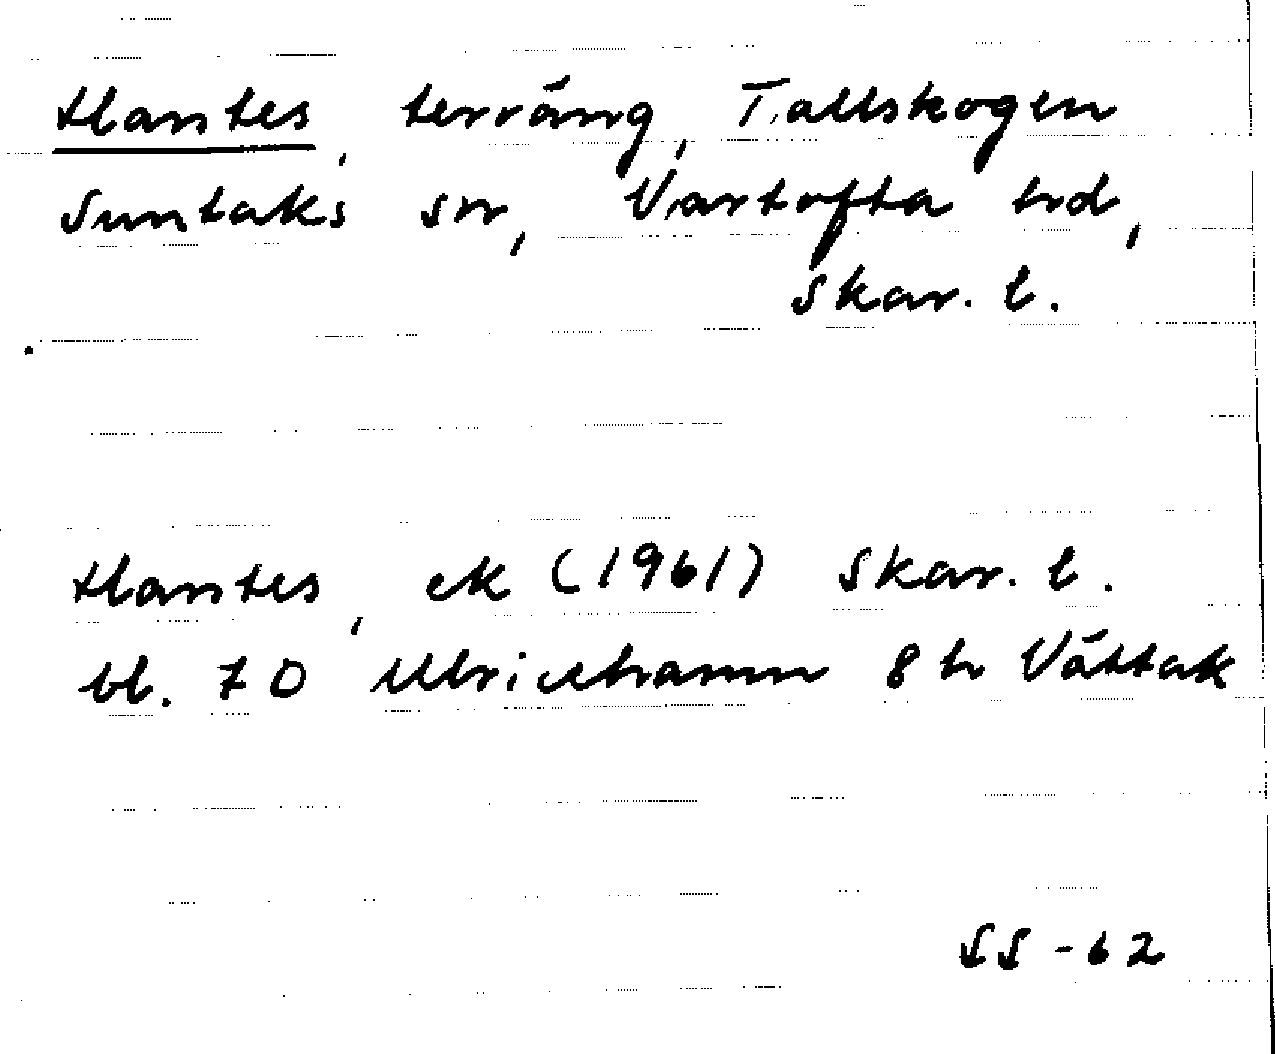 Hantes, terräng, Tallskogen
Suntaks sn, Vartofta hd,
Skar. l.
Hantes, ek (1961) Skar. l.
bl. 70 Ulricehamn 8 h Vättak
SS -62